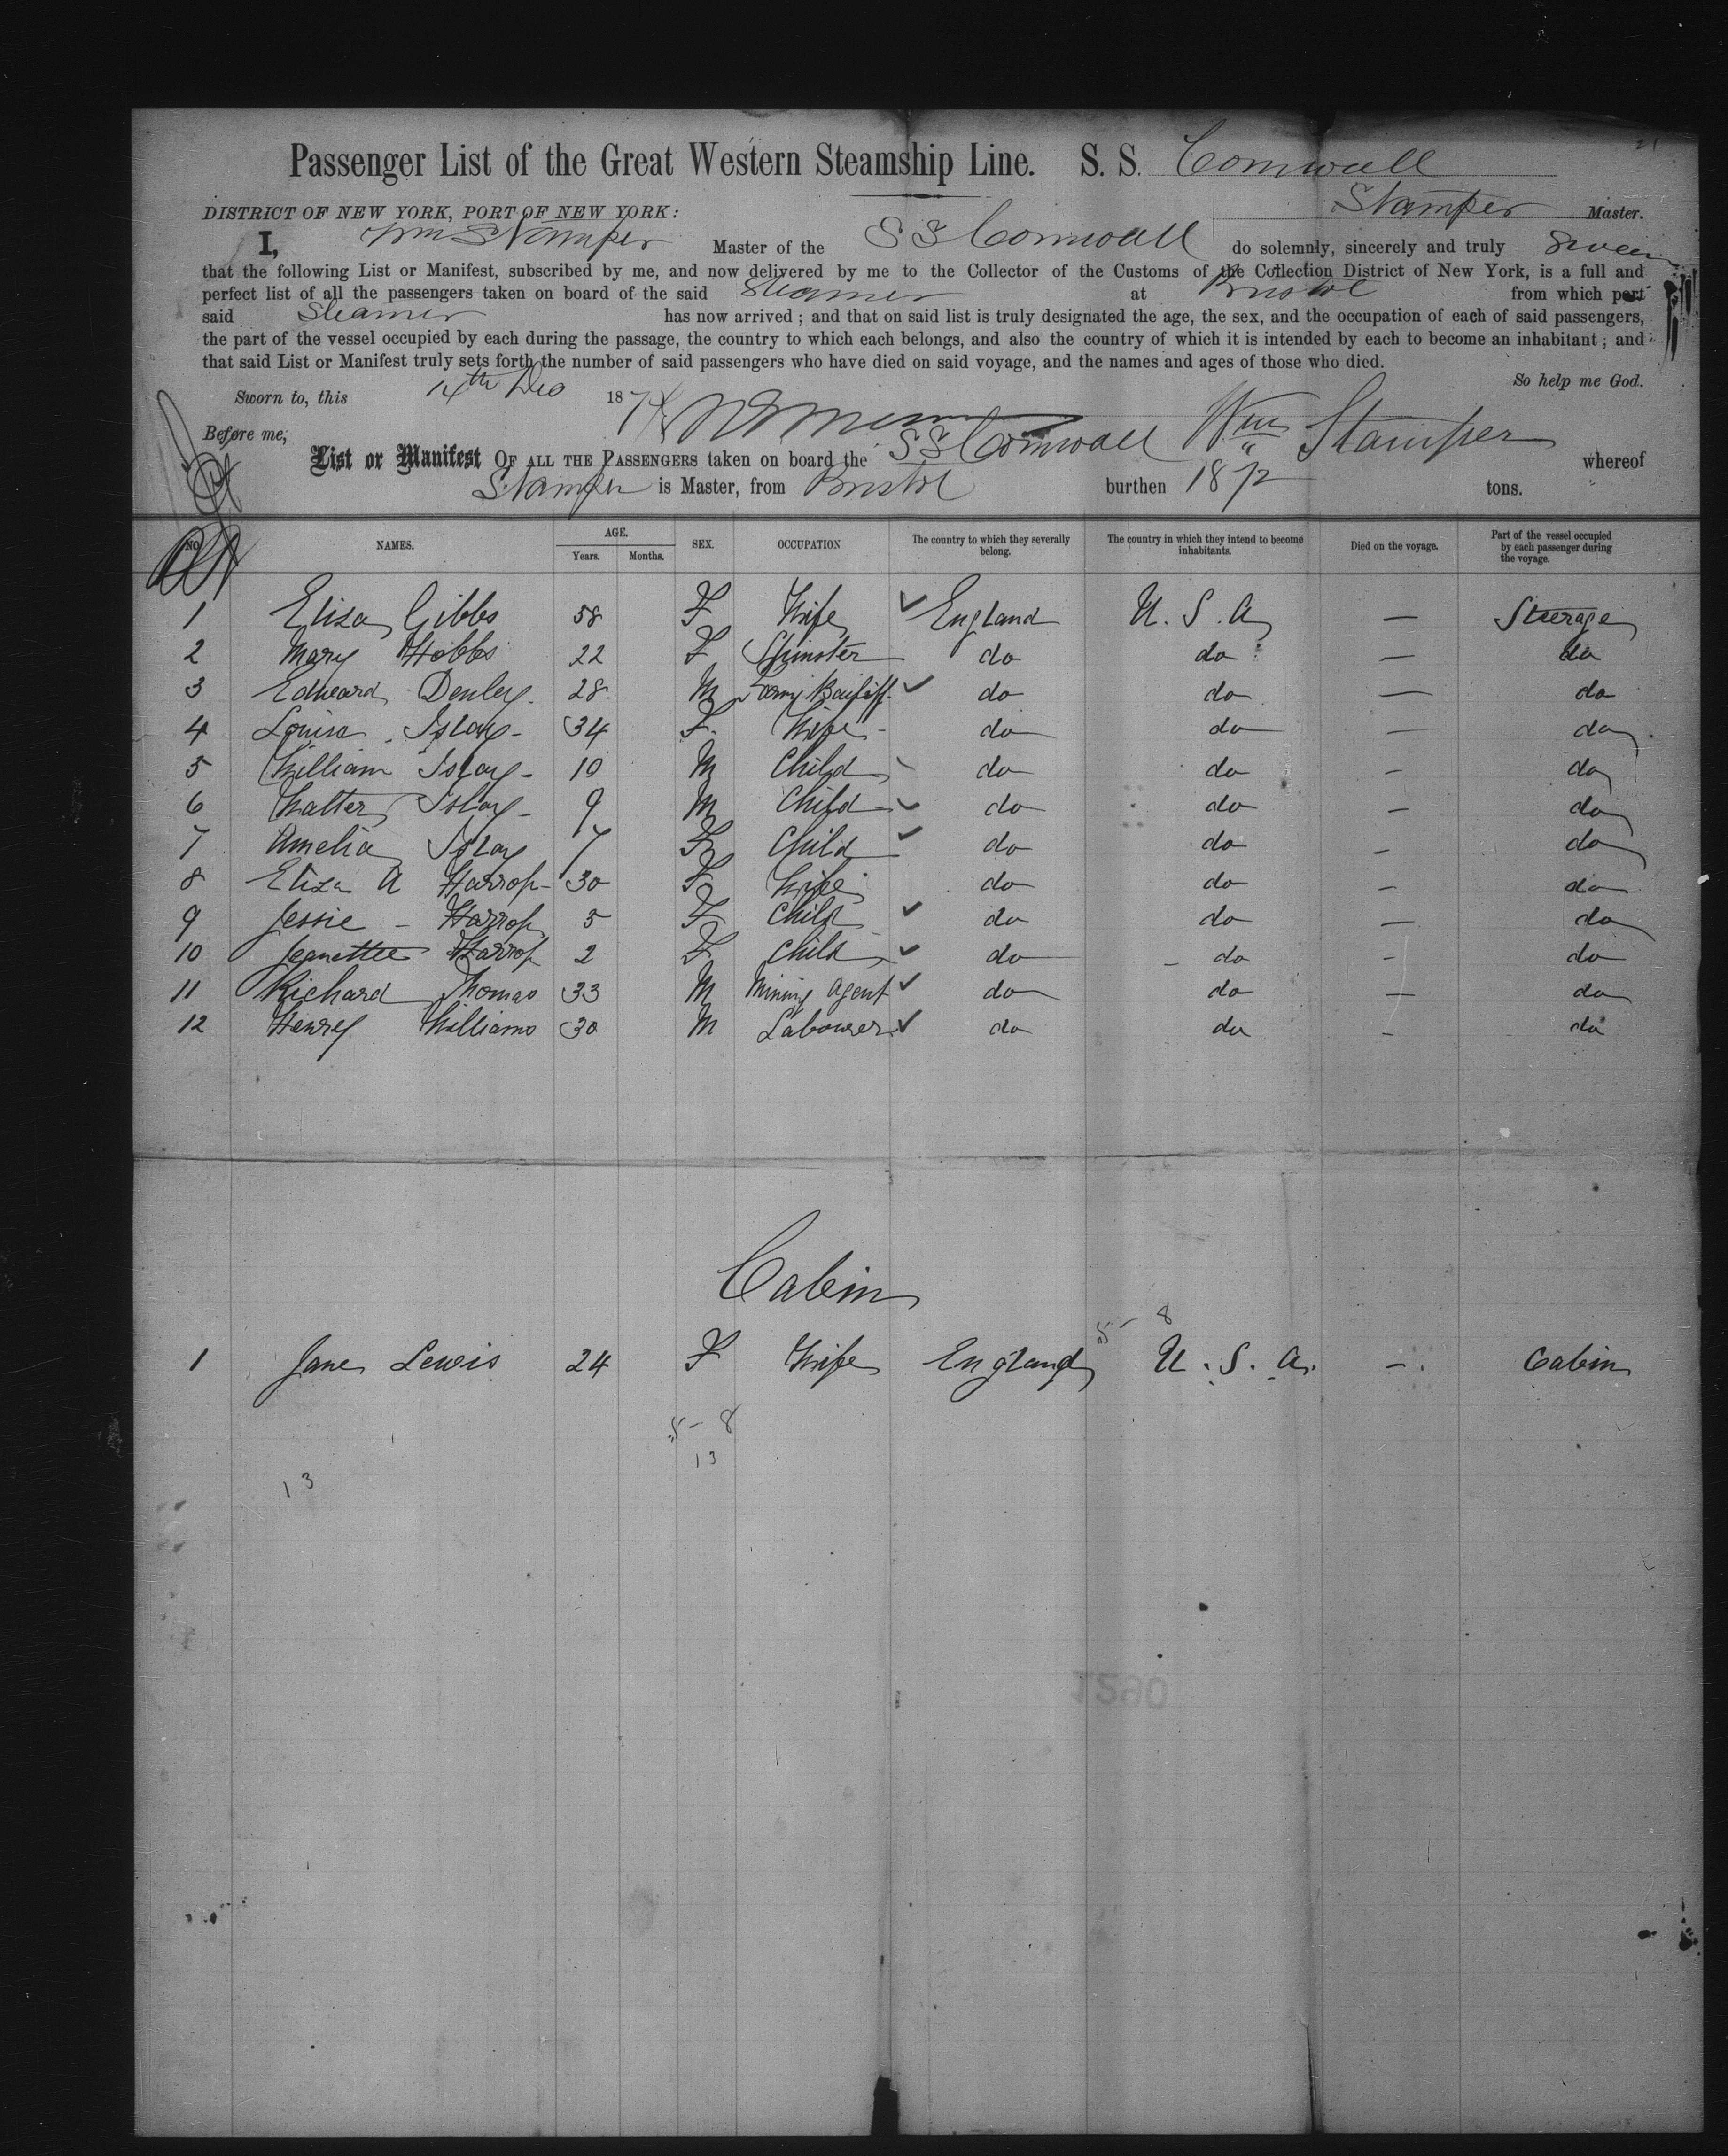 Passenger List of the Great Western Steamship Line. S. S. Cornwall
Stamper Master.
DISTRICT OF NEW YORK, PORT OF NEW YORK:
I, Wm Stamper Master of the SS Cornwall do solemnly, sincerely and truly Swear
that the following List or Manifest, subscribed by me, and now delivered by me to the Collector of the Customs of the Collection District of New York, is a full and
perfect list of all the passengers taken on board of the said Steamer at Bristol from which port
said Steamer has now arrived; and that on said list is truly designated the age, the sex, and the occupation of each of said passengers,
the part of the vessel occupied by each during the passage, the country to which each belongs, and also the country of which it is intended by each to become an inhabitant; and
that said List or Manifest truly sets forth the number of said passengers who have died on said voyage, and the names and ages of those who died.
So help me God.
Sworn to, this 14th Dec 1874
Before me, Wm Stamper
List or Manifest OF ALL THE PASSENGERS taken on board the SS Cornwall whereof
Stamper is Master, from Bristol burthen 1872 tons.
NO. NAMES. AGE. Years. Months. SEX. OCCUPATION The country to which they severally belong. The country in which they intend to become inhabitants. Died on the voyage. Part of the vessel occupied by each passenger during the voyage.
1 Eliza Gibbs 58 F Wife England U. S. A — Steerage
2 Mary Hobbs 22 F Spinster do do — do
3 Edward Denley 28 M Farm Bailiff do do — do
4 Louisa 34 F. Wife do do — do
5 William 10 M Child do do — do
6 Walter 9 M Child do do — do
7 Amelia 7 F Child do do — do
8 Eliza A Harrop 30 F Wife do do — do
9 Jessie Harrop 5 F Child do do — do
10 Jeanettee Harrop 2 F Child do do — do
11 Richard Thomas 33 M Mining Agent do do — do
12 Henry Williams 30 M Labourer do do — do
Cabin
5 - 8
1 Jane Lewis 24 F Wife England U. S. A. — Cabin
5 - 8
13
13